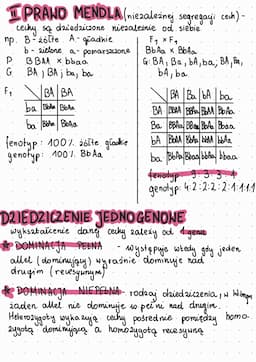 II PRAWO MENDLA (niezależnej segregacji cech) -
cechy są dziedziczone niezależnie od siebie
np. B - żółte A - gładkie
b - zielone a - pomarszczone
P BBAA x bbaa
G BA; BA; ba, ba
F₁ BA BA
ba BbAa BbAa
ba BbAa BbAa
fenotyp: 100% żółte gładkie
genotyp: 100% BbAa
F₁ x F₁
BbAa x BbAa
G: BA; Ba, bA, ba; BA, Ba,
bA, ba
BA Ba bA ba
BA BBAA BBAa BbAA BbAa
Ba BBAa BBaa BbAa Bbaa
bA BbAA BbAa bbAA bbAa
ba BbAa Bbaa bbAa bbaa
fenotyp 9:3:3:1
genotyp: 4:2:2:2:2:1:1:1:1
DZIEDZICZENIE JEDNOGENOWE
wykształcenie danej cechy zależy od 1 genu
DOMINACJA PEŁNA - występuje wtedy gdy jeden
allel (dominujący) wyraźnie dominuje nad
drugim (recesywnym)
DOMINACJA NIEPEŁNA rodzaj dziedziczenia, w którym
żaden allel nie dominuje w pełni nad drugim.
Heterozygoty wykazują cechy pośrednie pomiędzy homo-
zygotą dominującą a homozygotą recesywną